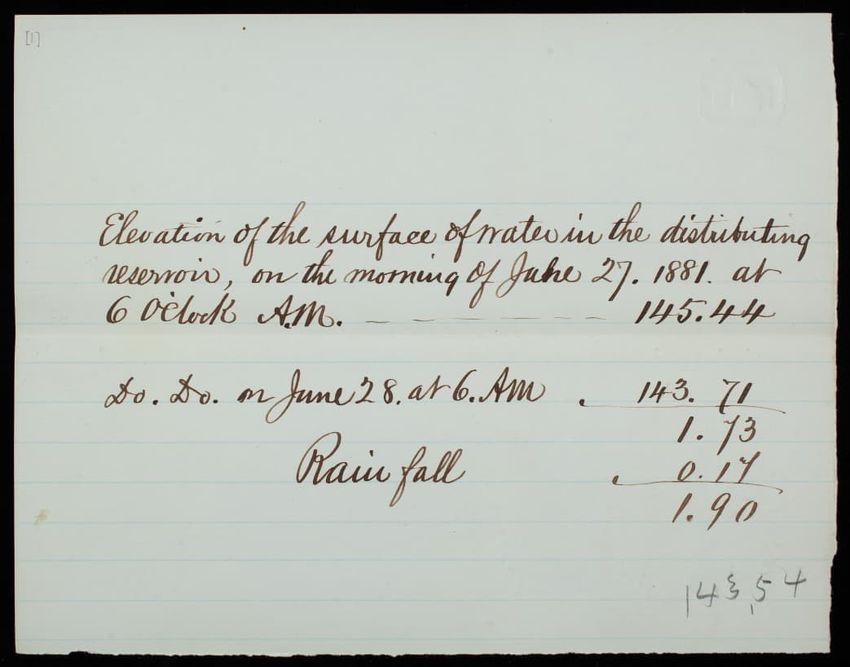 [1]
Elevation of the surface of water in the distributing
reservoir, on the morning of June 27. 1881. at
6 O'Clock A.M. — — — — — — 145.44
Do. Do. on June 28. at 6. AM . 143. 71
1. 73
Rain fall . 0.17
1.90
143,54